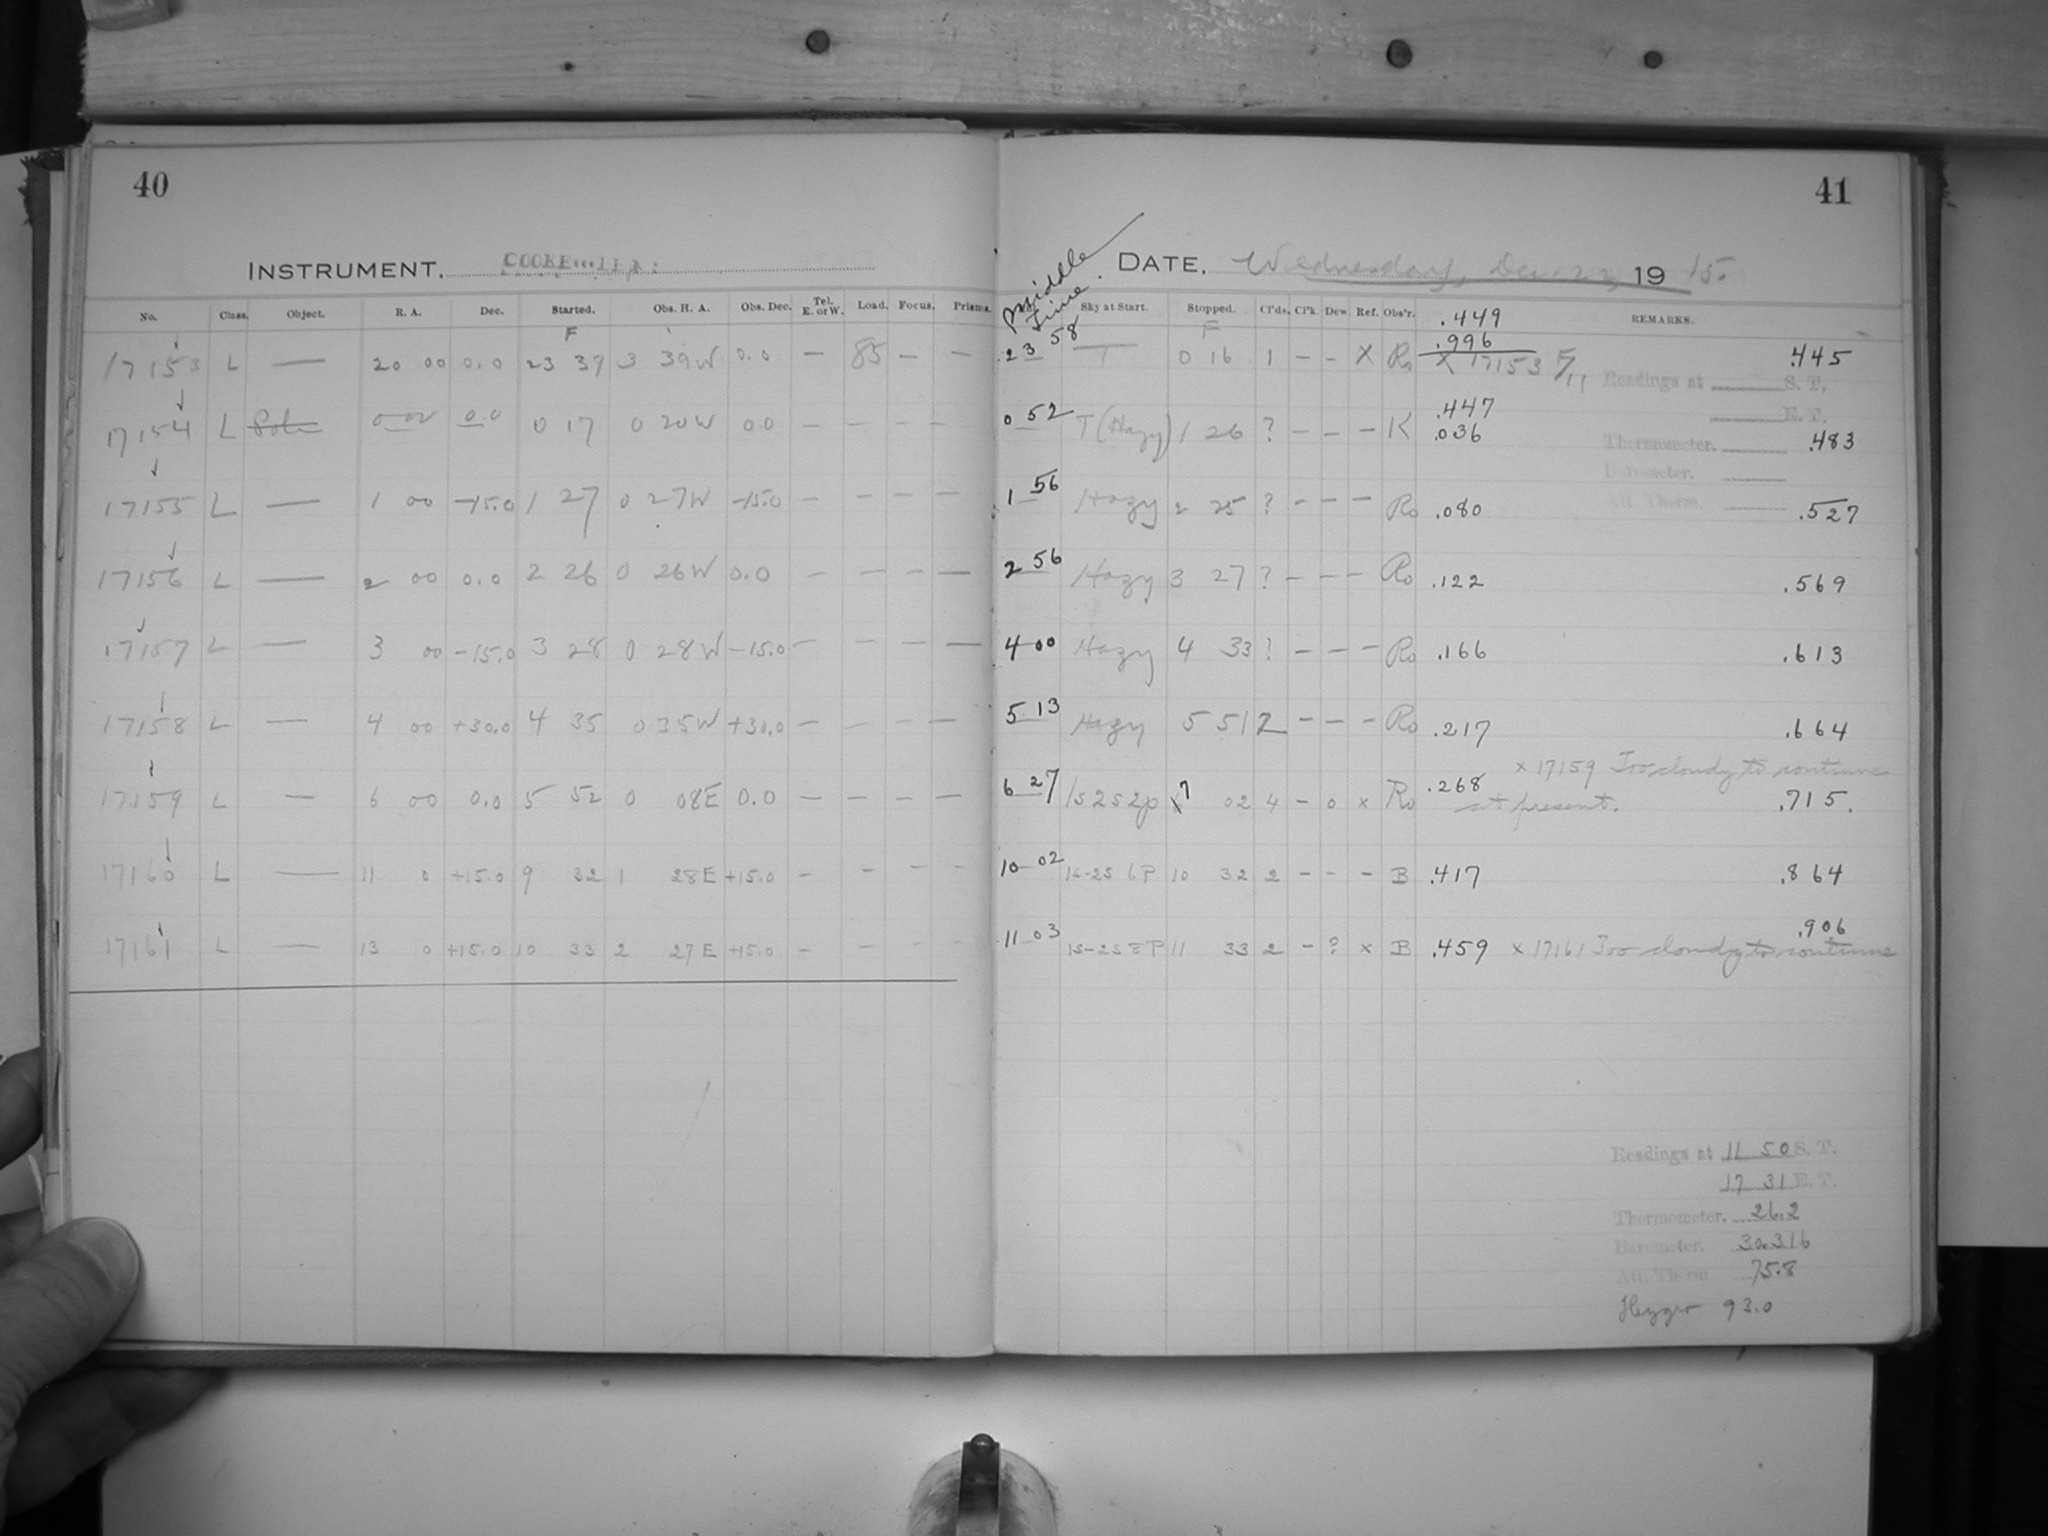 40
INSTRUMENT.
No. Class. Object. R. A. Dec. Started. Obs. H. A. Obs. Dec. Tel. E. or W. Load. Focus. Prisms.
F
17153 L — 20 00 0.0 23 39 3 39W 0.0 — 85 — —
17154 L Pole 0 00 0.0 0 17 0 20W 0.0 — — — —
17155 L — 1 00 -15.0 1 27 0 27W -15.0 — — — —
17156 L — 2 00 0.0 2 26 0 26W 0.0 — — — —
17157 L — 3 00 -15.0 3 28 0 28W -15.0 — — — —
17158 L — 4 00 +30.0 4 35 0 35W +30.0 — — — —
17159 L — 6 00 0.0 5 52 0 08E 0.0 — — — —
17160 L — 11 0 +15.0 9 32 1 28E +15.0 — — — —
17161 L — 13 0 +15.0 10 33 2 27E +15.0 — — — —
41
Middle Time.
DATE. Wednesday, Dec. 22, 1915.
Sky at Start. Stopped. Cl'ds. Cl'k. Dew. Ref. Obs'r. REMARKS.
.449
F
.996
23 58 T 0 16 1 — — X Ro X 17153 F/11 .445
Readings at S. T.
E. T.
.447
0 52 T (Hazy) 1 26 ? — — — K .036 .483
Thermometer.
Barometer.
Att. Therm.
1 56 Hazy 2 25 ? — — — Ro .080 .527
2 56 Hazy 3 27 ? — — — Ro .122 .569
4 00 Hazy 4 33 ? — — — Ro .166 .613
5 13 Hazy 5 51 2 — — — Ro .217 .664
x 17159 Too cloudy to continue
6 27 1s 2s 2p 7 02 4 — 0 x Ro .268 at present. .715.
10 02 1s-2s 6P 10 32 2 — — — B .417 .864
.906
11 03 1s-2s 8P 11 33 2 — ? x B .459 x 17161 Too cloudy to continue
Readings at 11 50 S. T.
17 31 E. T.
Thermometer. 26.2
Barometer. 30.316
Att. Therm 75.8
Hygro 93.0